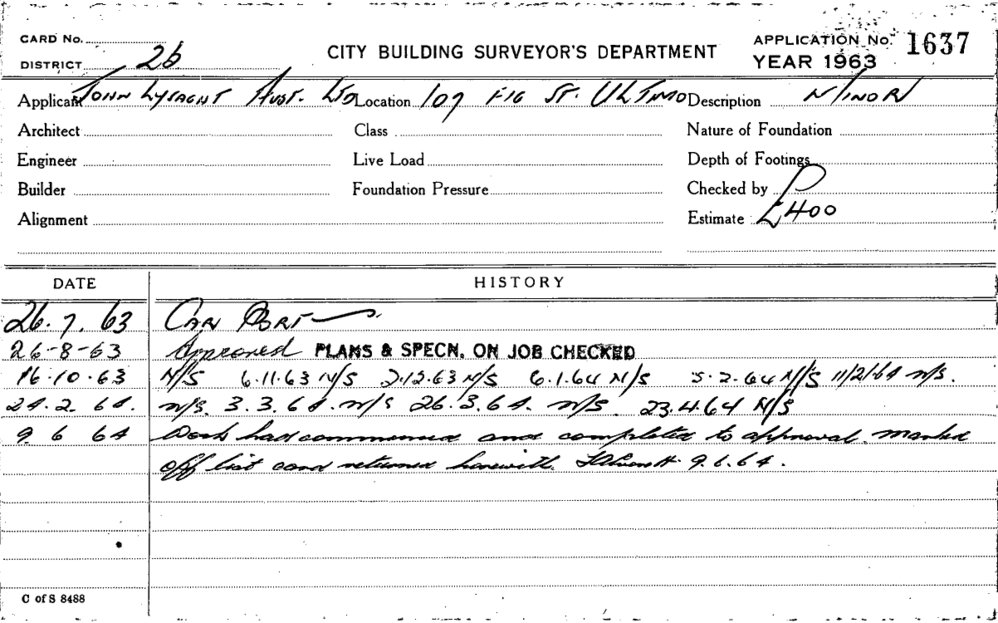 CARD No.
DISTRICT 2b
CITY BUILDING SURVEYOR'S DEPARTMENT
APPLICATION No. 1637
YEAR 1963
Applicant John Lysaght Aust. Ltd Location 107 FIG ST. ULTIMO Description MINOR
Architect Class Nature of Foundation
Engineer Live Load Depth of Footings
Builder Foundation Pressure Checked by
Alignment Estimate £400
DATE HISTORY
26.7.63 CAR PORT
26-8-63 Approved PLANS & SPECN. ON JOB CHECKED
16-10-63 N/S 6.11.63 N/S 2.12.63 N/S 6.1.64 N/S 5.2.64 N/S 11/2/64 N/S.
24.2.64. N/S. 3.3.64. N/S 26.3.64. N/S. 23.4.64 N/S
9 6 64 Work had commenced and completed to approval. marked
off list card returned herewith. 9.6.64.
C of S 8488